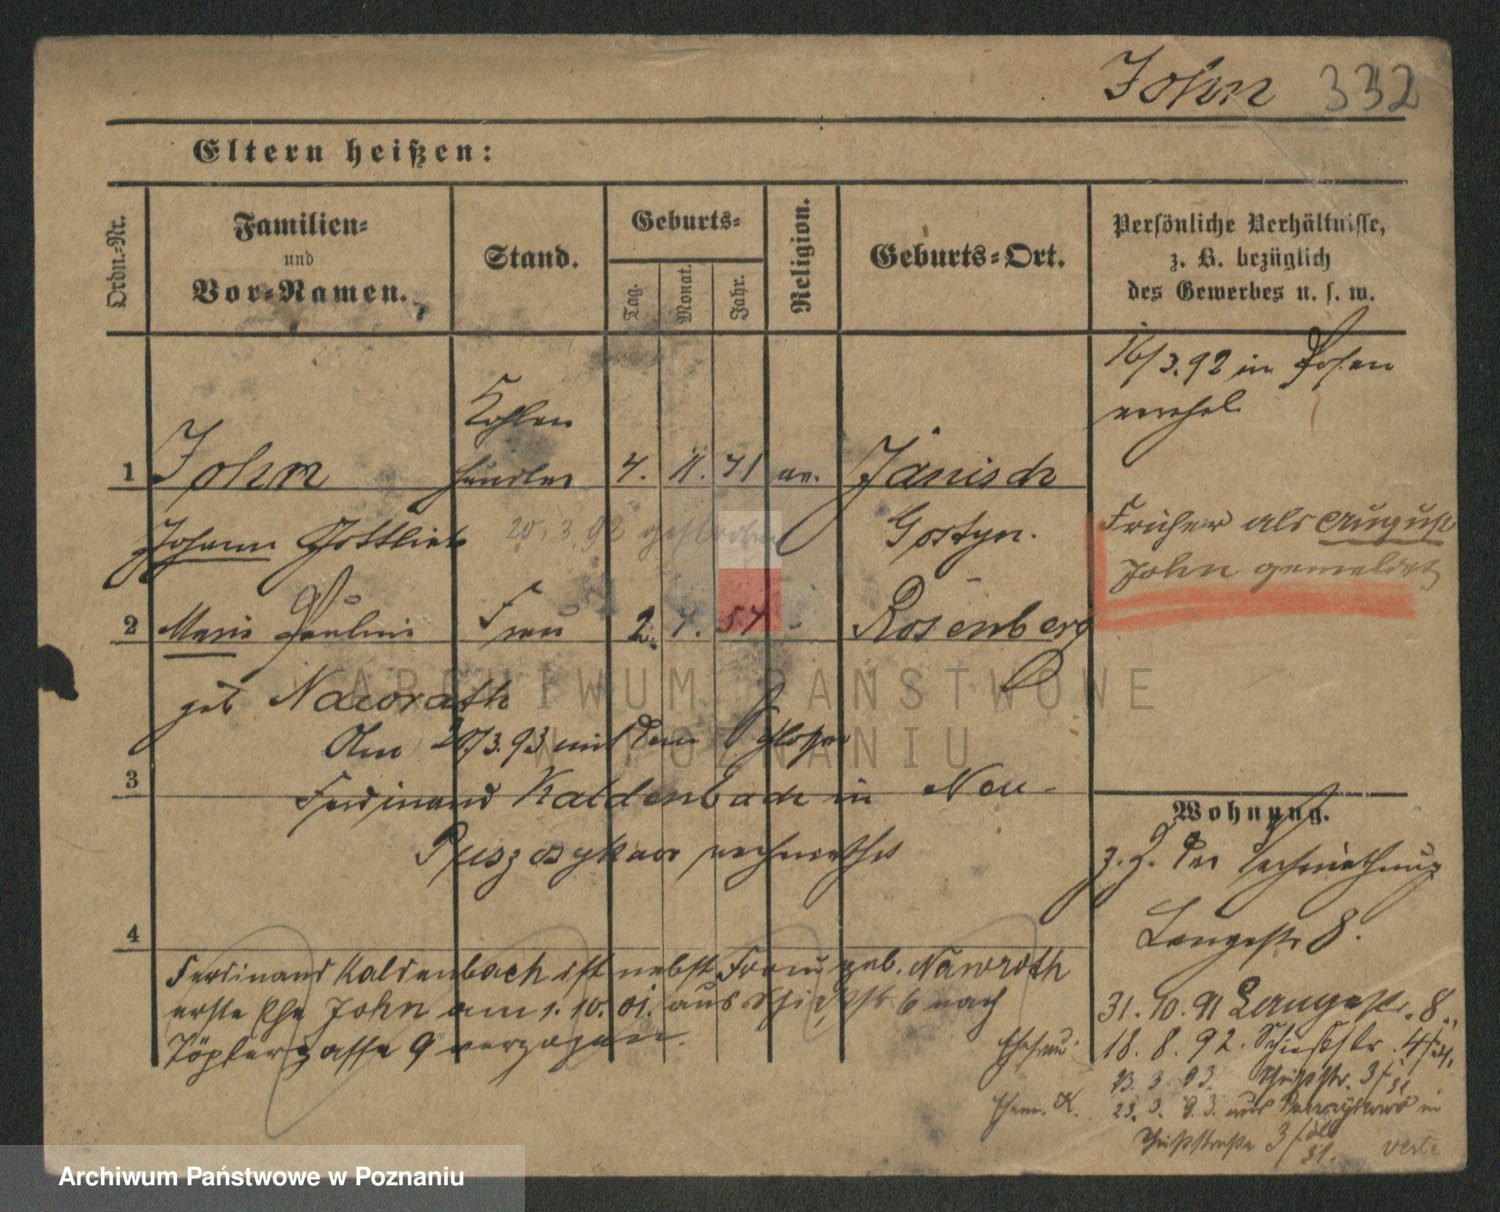 John 332
Eltern heißen:
Ordn.-Nr.
Familien-
und
Vor-Namen.
Stand.
Geburts-
Tag.
Monat.
Jahr.
Religion.
Geburts-Ort.
Persönliche Verhältnisse,
z. B. bezüglich
des Gewerbes u. s. w.
16/3.92 in Posen
Kohlen
1 John händler 4. 11. 41 ev. Jänisch
Johann Gottlieb 20.3.92 gestorben Gostyn.
Früher als August
John gemeldet
2 Marie Pauline Frau 2. 7. 54 " Rosenberg
geb Nawrath
Am 20/3.93 mit dem
3 Ferdinand Kaldenbach in Neu-
4
Wohnung.
z. Z. der
Langestr 8.
Ferdinand Kaldenbach ist nebst Frau geb. Nawroth
erste Ehe John am 1.10.01. aus Schießstr 6 nach
Töpfergasse 9 verzogen.
31. 10. 91 Langestr. 8.
Ehefrau 18. 8. 92. Schießstr. 4
23. 3. 93. Schießstr. 3/31
Ehem. K. 23. 3. 93. aus
Schießstraße 3
31.
verte
ARCHIWUM PAŃSTWOWE
W POZNANIU
Archiwum Państwowe w Poznaniu